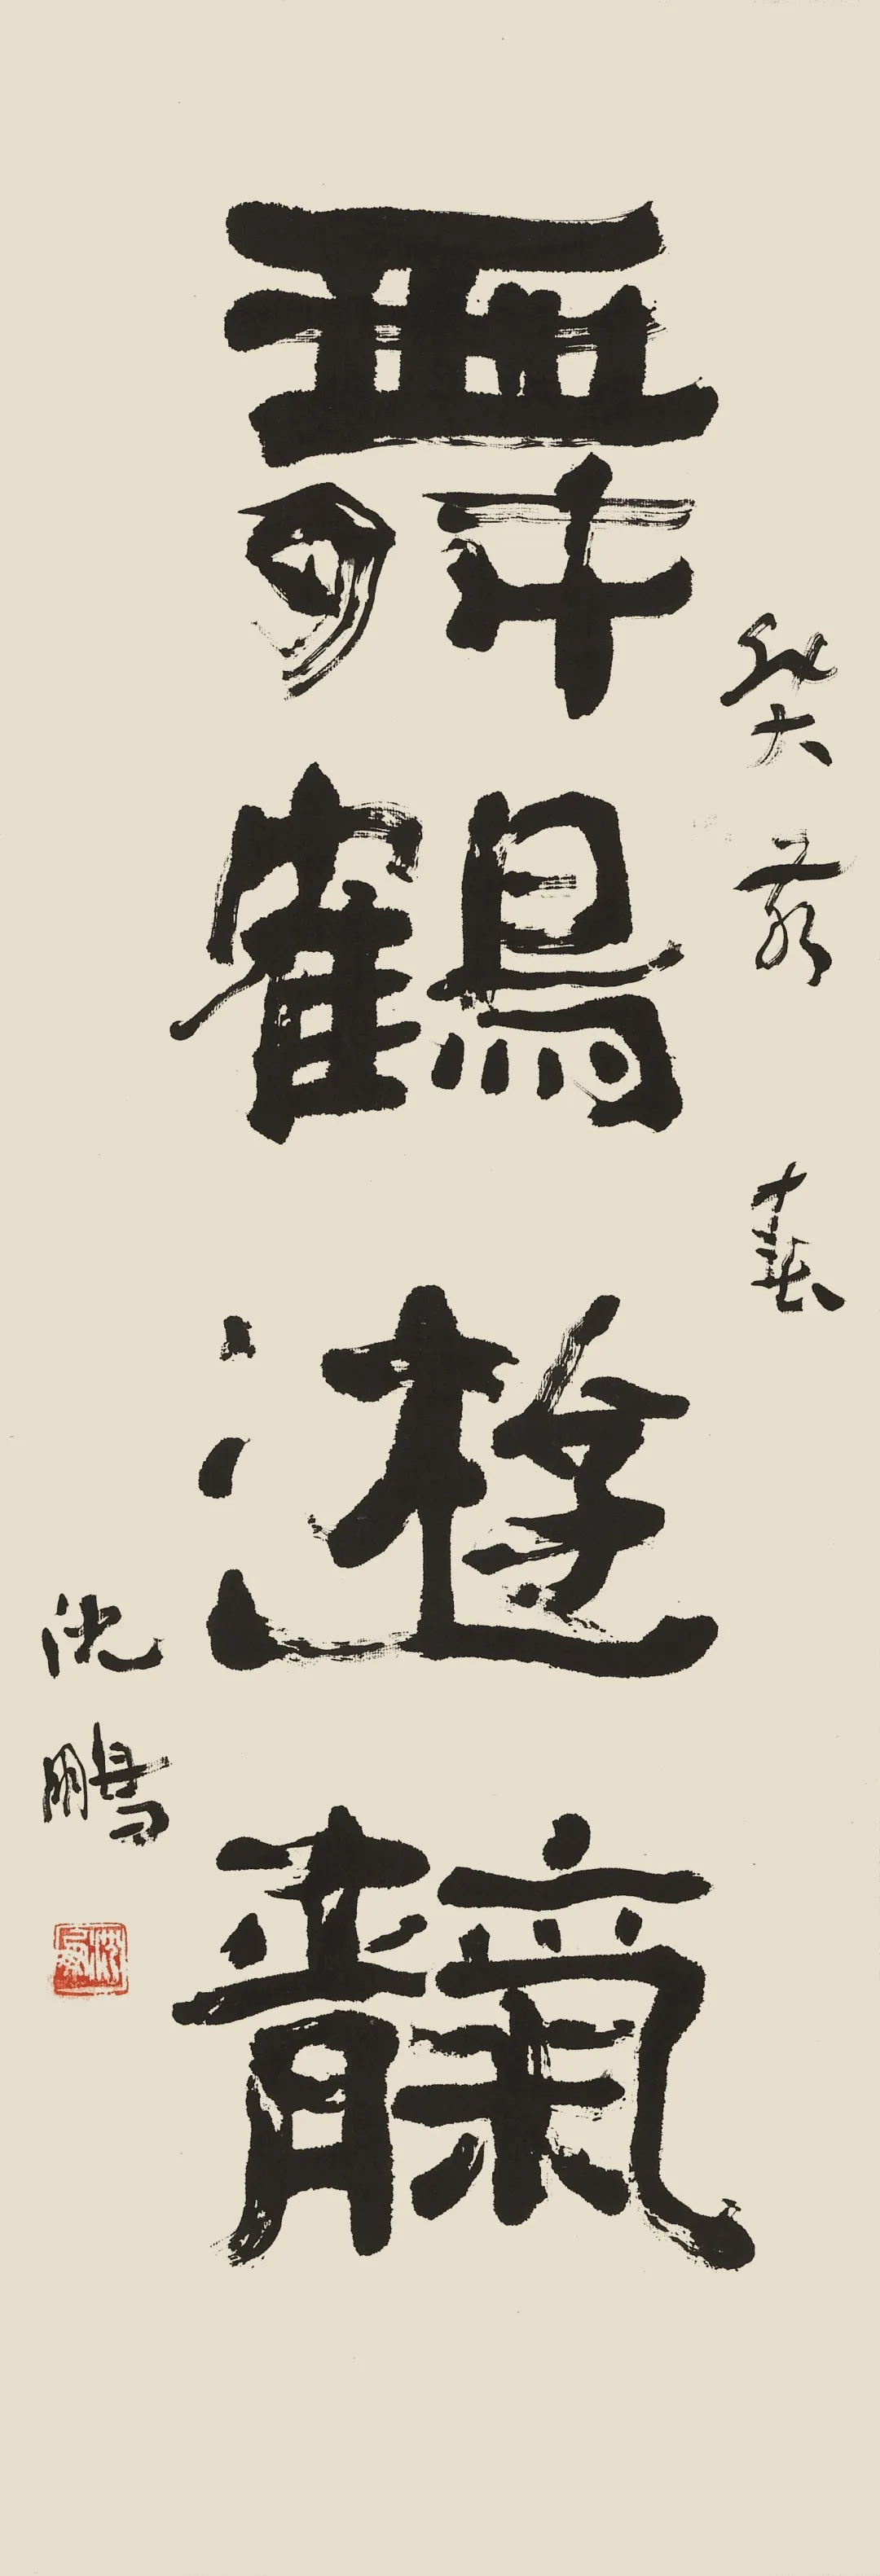 癸亥春
舞鶴遊靝
沈鵬